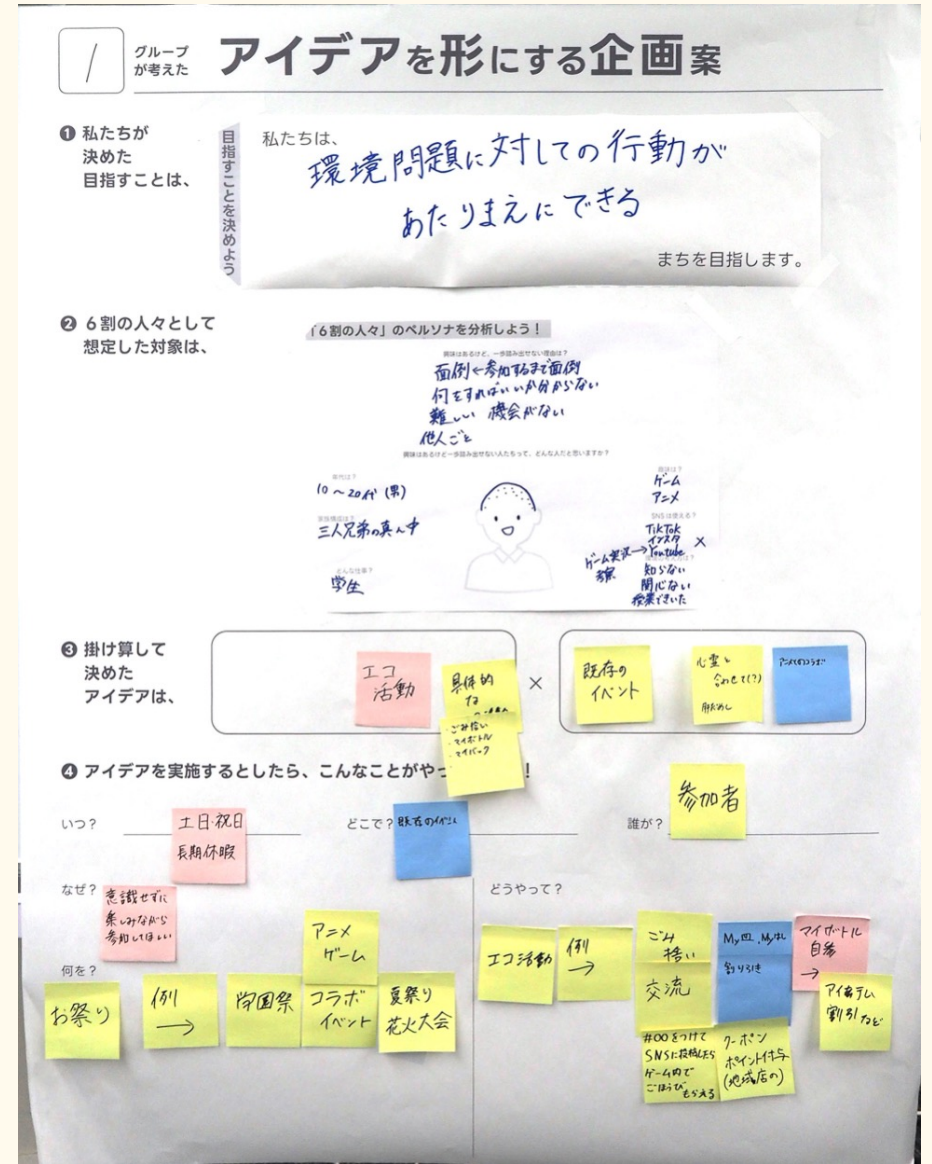 1
グループ
が考えた
アイデアを形にする企画案
❶ 私たちが
決めた
目指すことは、
目指すことを決めよう
私たちは、
環境問題に対しての行動が
あたりまえにできる
まちを目指します。
❷ 6割の人々として
想定した対象は、
「6割の人々」のペルソナを分析しよう！
興味はあるけど、一歩踏み出せない理由は？
面倒←参加するまで面倒
何をすればいいか分からない
難しい 機会がない
他人ごと
興味はあるけど一歩踏み出せない人たちって、どんな人だと思いますか？
年代は？
10〜20代(男)
家族構成は？
三人兄弟の真ん中
どんな仕事？
学生
趣味は？
ゲーム
アニメ
SNSは使える？
TikTok
インスタ
Youtube
×
ゲーム実況→
考察
知らない
関心ない
授業できいた
❸ 掛け算して
決めた
アイデアは、
エコ
活動
具体的
な
・ごみ拾い
・マイボトル
・マイバック
×
既存の
イベント
心霊と
合わせて(?)
肝だめし
❹ アイデアを実施するとしたら、こんなことがや
！
いつ？
土日・祝日
長期休暇
どこで？
既存のイベント
誰が？
参加者
なぜ？
意識せずに
楽しみながら
参加してほしい
何を？
お祭り
例
→
学園祭
アニメ
ゲーム
コラボ
イベント
夏祭り
花火大会
どうやって？
エコ活動
例
→
ごみ
拾い
交流
#〇〇をつけて
SNSに投稿したら
ゲーム内で
ごほうび
もらえる
My皿、Myはし
割り引き
クーポン
ポイント付与
(地域店の)
マイボトル
持参
→
アイテム
割引など